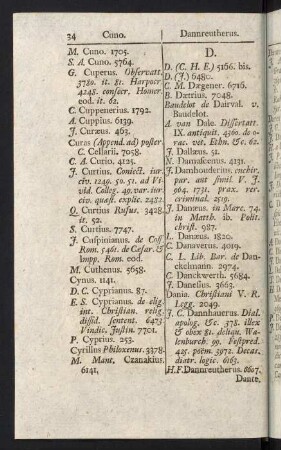 34 Cuno. Dannreutherus.
M. Cuno. 1705.
S. A. Cuno. 5764.
G. Cuperus. Observatt.
3780. it. 81. Harpocr.
4248. consecr. Homer.
eod. it. 62.
C. Cuppenerius. 1792.
A. Cuppius. 6139.
J. Curæus. 463.
Curas (Append. ad) poster.
C. Cellarii. 7058.
C. A. Curio. 4125.
J. Curtius. Coniect. iur.
civ. 1249. 50. 51. ad Vi-
vld. Colleg. 49. var. iur.
civ. quæst. explic. 2482.
Q. Curtius Rufus. 3428.
it. 52.
S. Curtius. 7747.
J. Cuspinianus. de Coss.
Rom. 5461. de Cæsar. &
Impp. Rom. eod.
M. Cuthenus. 5658.
Cynus. 1141.
D. C. Cyprianus. 87.
E. S. Cyprianus. de elig.
int. Christian. relig.
dissid. sentent. 6473
Vindic. Justin. 7701.
P. Cyprius. 253.
Cyrillus Philoxenus. 3378.
M. Mant. Czanakius.
6141.
D.
D. (C. H. E.) 5166. bis.
D. (J.) 6480.
C. M. Dægener. 6716.
B. Dætrius. 7048.
Baudelot de Dairval. v.
Baudelot.
A. van Dale. Dissertatt.
IX. antiquit. 4360. de o-
rac. vet. Ethn. &c. 62.
J. Dallæus. 51.
N. Damascenus. 4131.
J. Damhouderius. enchir.
par. aut simil. V. J.
904. 1731. prax. rer.
criminal. 2519.
J. Danæus. in Marc. 74.
in Matth. ib. Polit.
christ. 987.
L. Danæus. 1820.
C. Danaverus. 4019.
C. L. Lib. Bar. de Dan-
ckelmann. 2974.
C. Danckwerth. 5684.
J. Danesius. 3663.
Dania. Christiani V. R.
Legg. 2049.
J. C. Dannhauerus. Dial.
apolog. &c. 378. illex
& obex 81. deliqu. Wa-
lenburch. 99. Festpred.
425. poëm. 3973. Decas.
diatr. logic. 6163.
H. F. Dannreutherus. 8607.
Dante.